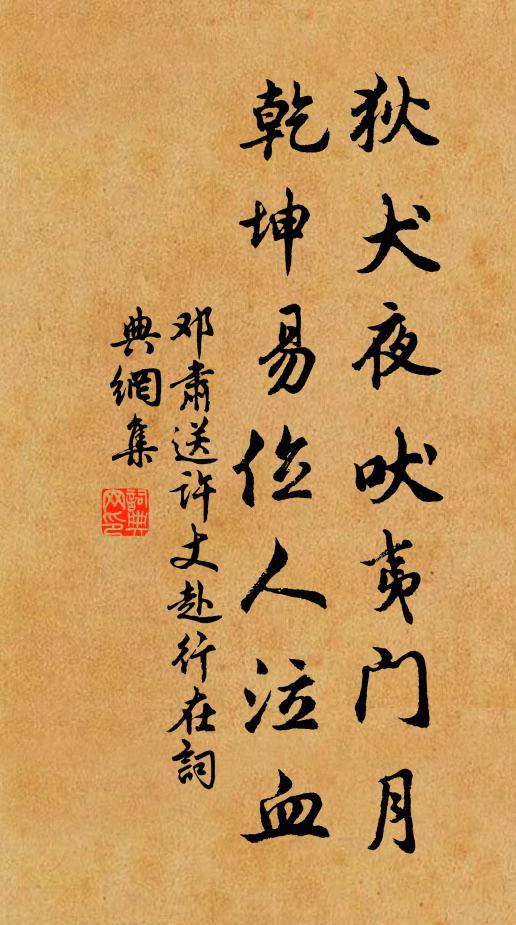 狄犬夜吠夷门月
乾坤易位人泣血
邓肃送许丈赴行在詞
典網集
詞典
网印